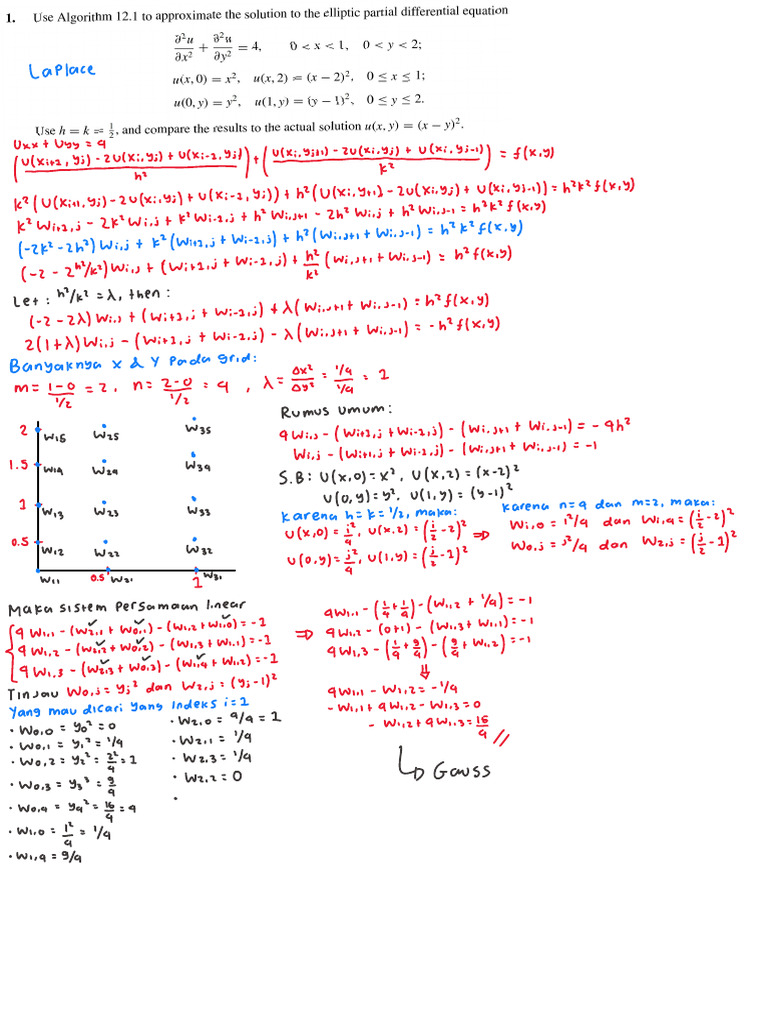 1. Use Algorithm 12.1 to approximate the solution to the elliptic partial differential equation
∂²u/∂x² + ∂²u/∂y² = 4, 0 < x < 1, 0 < y < 2;
Laplace
u(x, 0) = x², u(x, 2) = (x − 2)², 0 ≤ x ≤ 1;
u(0, y) = y², u(1, y) = (y − 1)², 0 ≤ y ≤ 2.
Use h = k = 1/2, and compare the results to the actual solution u(x, y) = (x − y)².
Uxx + Uyy = 4
(U(xi+1, yj) - 2U(xi, yj) + U(xi-1, yj) / h²) + (U(xi, yj+1) - 2U(xi, yj) + U(xi, yj-1) / k²) = f(x,y)
k² (U(xi+1, yj) - 2U(xi, yj) + U(xi-1, yj)) + h² (U(xi, yj+1) - 2U(xi, yj) + U(xi, yj-1)) = h²k² f(x,y)
k² Wi+1,j - 2k² Wi,j + k² Wi-1,j + h² Wi,j+1 - 2h² Wi,j + h² Wi,j-1 = h²k² f(x,y)
(-2k² - 2h²) Wi,j + k² (Wi+1,j + Wi-1,j) + h² (Wi,j+1 + Wi,j-1) = h²k² f(x,y)
(-2 - 2h²/k²) Wi,j + (Wi+1,j + Wi-1,j) + h²/k² (Wi,j+1 + Wi,j-1) = h² f(x,y)
Let : h²/k² = λ, then :
(-2 - 2λ) Wi,j + (Wi+1,j + Wi-1,j) + λ (Wi,j+1 + Wi,j-1) = h² f(x,y)
2(1+λ) Wi,j - (Wi+1,j + Wi-1,j) - λ (Wi,j+1 + Wi,j-1) = -h² f(x,y)
Banyaknya x & y pada grid:
m = 1-0 / 1/2 = 2, n = 2-0 / 1/2 = 4, λ = Δx²/Δy² = 1/4 / 1/4 = 1
2 W15 W25 W35
1.5 W14 W24 W34
1 W13 W23 W33
0.5 W12 W22 W32
W11 0.5 W21 1 W31
Rumus Umum:
4Wi,j - (Wi+1,j + Wi-1,j) - (Wi,j+1 + Wi,j-1) = -4h²
Wi,j - (Wi+1,j + Wi-1,j) - (Wi,j+1 + Wi,j-1) = -1
S.B: U(x,0) = x², U(x,2) = (x-2)²
U(0,y) = y². U(1,y) = (y-1)²
Karena h = k = 1/2, maka:
U(x,0) = i²/4, U(x,2) = (i/2 - 2)²
U(0,y) = j²/4, U(1,y) = (j/2 - 1)²
⇒
Karena n=4 dan m=2, maka:
Wi,0 = i²/4 dan Wi,4 = (i/2 - 2)²
W0,j = j²/4 dan W2,j = (j/2 - 1)²
Maka sistem persamaan linear
4W1,1 - (W2,1 + W0,1) - (W1,2 + W1,0) = -1
4W1,2 - (W2,2 + W0,2) - (W1,3 + W1,1) = -1
4W1,3 - (W2,3 + W0,3) - (W1,4 + W1,2) = -1
Tinjau W0,j = yj² dan W2,j = (yj - 1)²
Yang mau dicari yang indeks i=1
• W0,0 = y0² = 0
• W0,1 = y1² = 1/4
• W0,2 = y2² = 2²/4 = 1
• W0,3 = y3³ = 9/4
• W0,4 = y4² = 16/4 = 4
• W1,0 = 1²/4 = 1/4
• W1,4 = 9/4
• W2,0 = 4/4 = 1
• W2,1 = 1/4
• W2,3 = 1/4
• W2,2 = 0
•
⇒
4W1,1 - (1/4 + 1/4) - (W1,2 + 1/4) = -1
4W1,2 - (0+1) - (W1,3 + W1,1) = -1
4W1,3 - (1/4 + 9/4) - (9/4 + W1,2) = -1
⇓
4W1,1 - W1,2 = -1/4
- W1,1 + 4W1,2 - W1,3 = 0
- W1,2 + 4W1,3 = 15/4 //
↳ Gauss